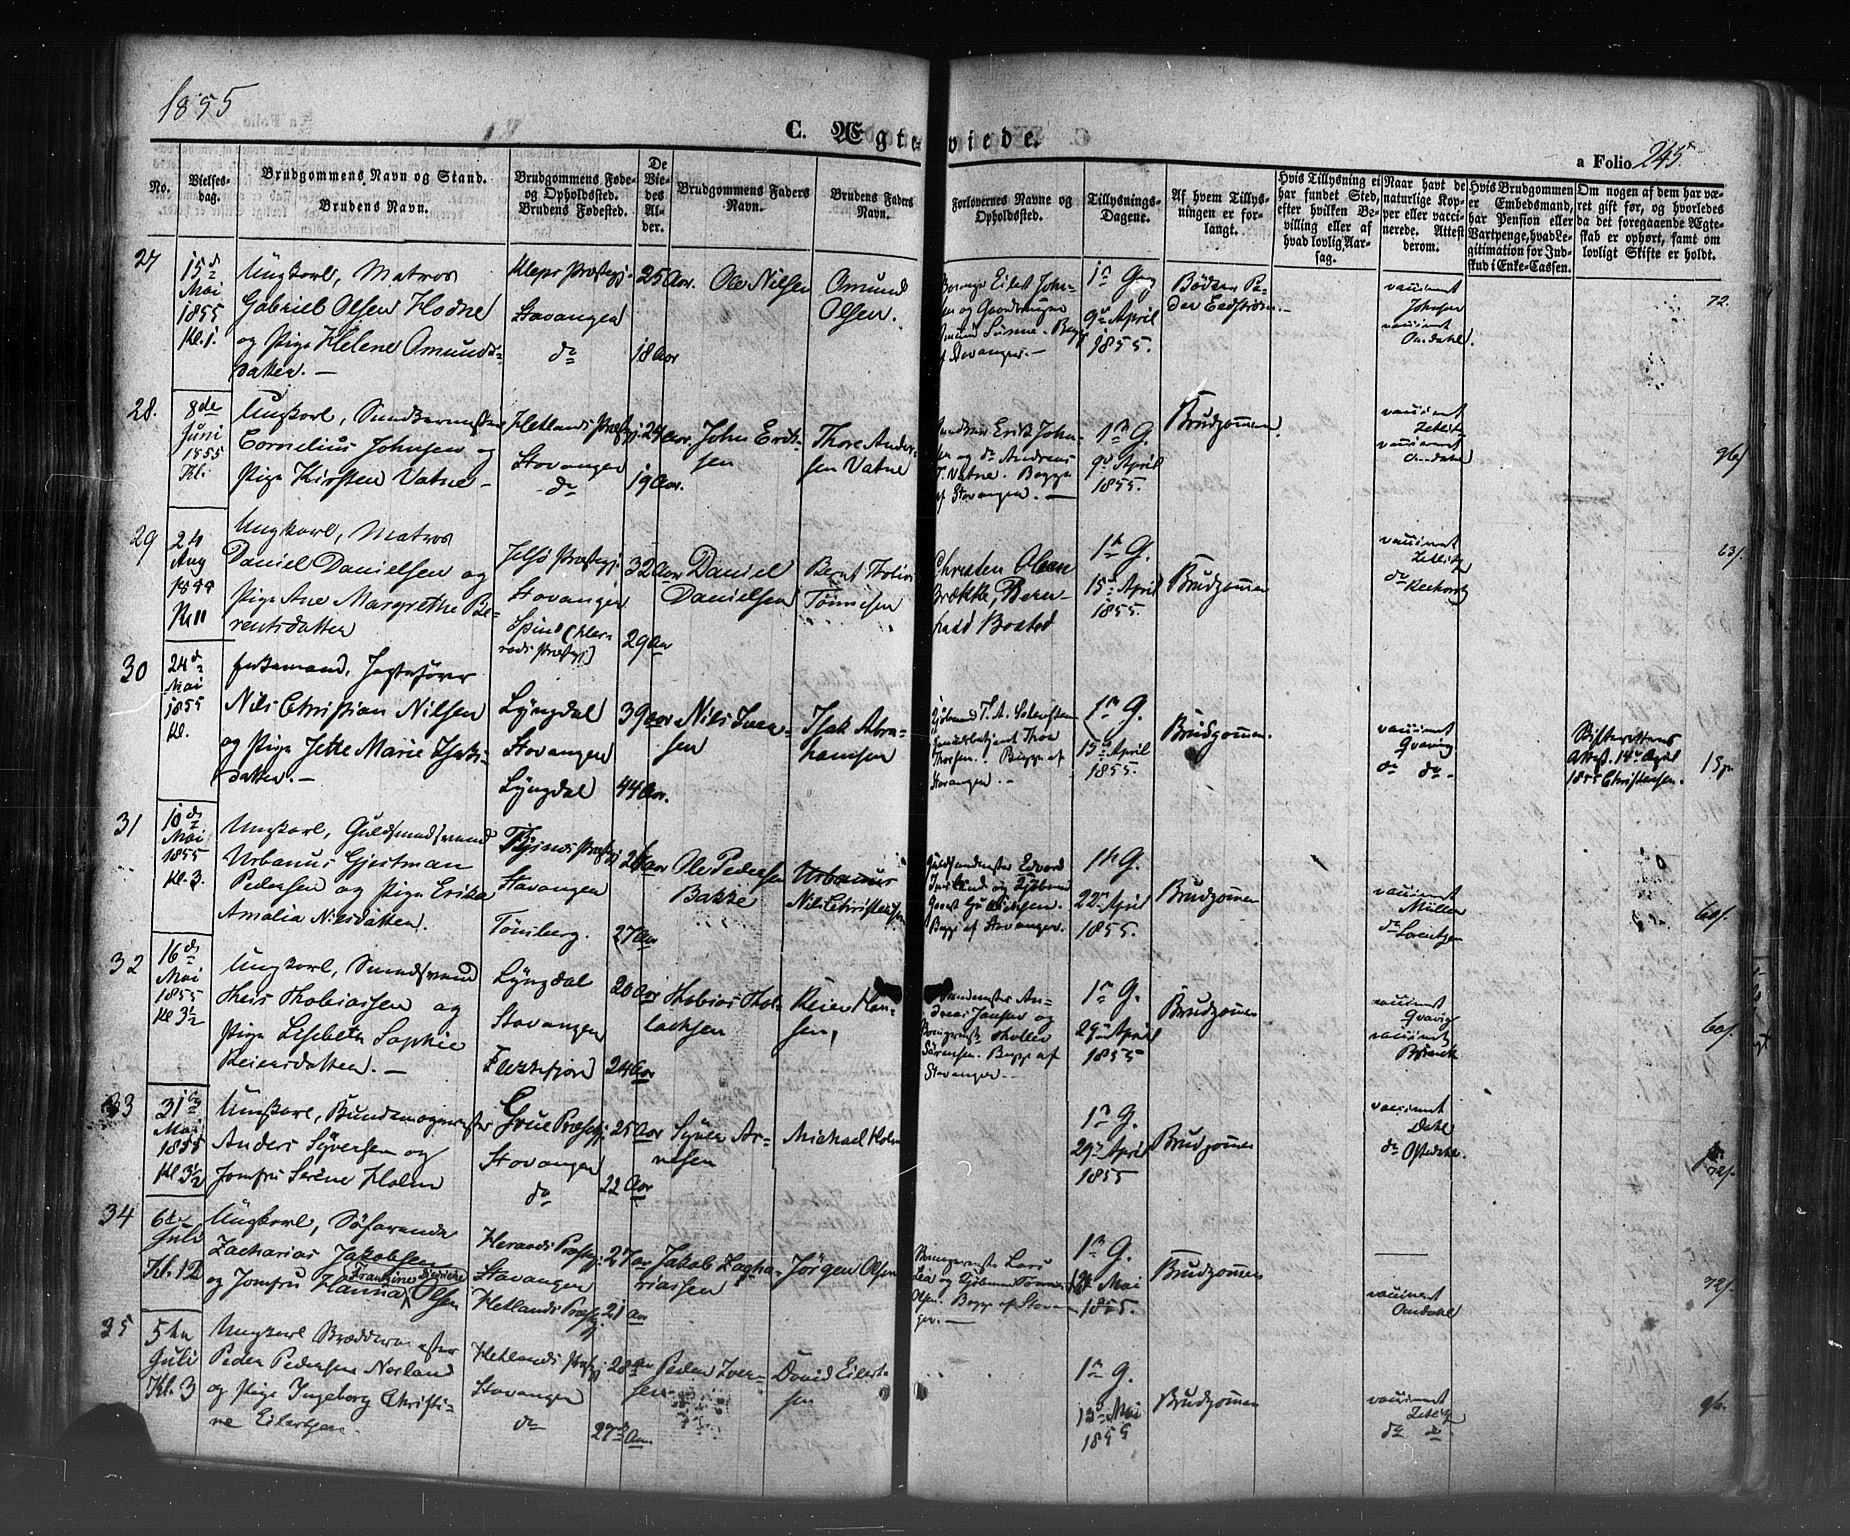 1855
C. Ægteviede.
a Folio 245.
No.
Vielses-
dag.
Brudgommens Navn og Stand.
Brudens Navn.
Brudgommens Føde-
og Opholdssted.
Brudens Fødested.
De
Vie-
des
Al-
der.
Brudgommens Faders
Navn.
Brudens Faders
Navn.
Forlovernes Navne og
Opholdssted.
Tillysnings-
Dagene.
Af hvem Tillys-
ningen er for-
langt.
Hvis Tillysning ei
har fundet Sted,
efter hvilken Be-
villing eller af
hvad lovlig Aar-
sag.
Naar havt de
naturlige Kop-
per eller vacci-
nerede. Attester
derom.
Hvis Brudgommen
er Embedsmand,
har Pension eller
Vartpenge, hvad Le-
gitimation for Ind-
skud i Enke-Cassen.
Om nogen af dem har væ-
ret gift før, og hvorledes
da det foregaaende Ægte-
skab er ophørt, samt om
lovligt Skifte er holdt.
27
15d
Mai
1855
Kl. 1.
Ungkarl, Matros
Gabriel Olsen Hodne
og Pige Helene Amunds-
datter. —
Kleps Præstegj
Stavanger
do
25 Aar.
18 Aar
Ole Nilsen
Amund
Olsen.
Eilert John-
sen og
af Stavanger. —
1n Gg
9d April
1855.
Bødker Pe-
der Eedström. —
vaccineret
Johnsen
vaccineret
Omdahl.
72.
28.
8de
Juni
1855
Kl.
Ungkarl,
Cornelius Johnsen og
Pige Kirsten Vatne —
Hetlands Præstegj.
Stavanger
do
24 Aar.
19 Aar.
John Erik-
sen
Thore Ander-
sen Vatne
Erik John-
sen og do Andreas
T. Vatne. Begge
af Stavanger. —
1n G.
9d April
1855.
Brudgommen.
vaccineret
Zetlitz
vaccineret
Omdahl
96/
29
24
Aug
Kl 11
Ungkarl, Matros
Daniel Danielsen og
Pige Ane Margrethe Be-
rentsdatter
Jelsø Præstegj
Stavanger
Spind (Her-
rads Præstegj)
32 Aar
29 Aar
Daniel
Danielsen
Bernt
Tönnesen
Christen Olsen
Brække, Bern-
hard
1n G.
15d April
1855.
Brudgommen
vaccineret
Zetlitz
do
63/.
30
24d
Mai
1855
Kl.
Enkemand, Jagtefører
Nils Christian Nilsen
og Pige Jette Marie Isaks-
datter. —
Lyngdal
Stavanger
Lyngdal
39 aar
44 Aar.
Nils Iver-
sen
Isak Abra-
hamsen
Thor
Thorsen. Begge af
Stavanger. —
1n G.
15d April
1855.
Brudgommen.
vaccineret
Qvarig
do do.
Skifterettens
Attest. 14d April
1855 Christensen.
31
10d
Mai
1855
Kl. 3.
Ungkarl, Guldsmedsvend
Urbanus Gjertman
Pedersen og Pige Erika
Amalia Nilsdatter.
Præstegj
Stavanger
Tönsberg.
26 aar
27 Aar
Ole Pedersen
Bakke
Urbanus
Nils Christensen
Guldsmedmester Edvard
og Kjöbmd
Begge af Stavanger.
1n G.
22n April
1855.
Brudgommen
vaccineret
Müller
do Lorentzen
60/.
32
16d
Mai
1855
Kl 3½
Ungkarl, Smedsvend
Theis Thobiassen og
Pige Lisebeth Sophie
Reiersdatter. —
Lyngdal
Stavanger
Flekkefjord
20 Aar
24 Aar
Thobias Thol-
lacksen
Reier Han-
sen,
An-
dreas Jansen og
Thollev
Sörensen. Begge af
Stavanger. —
1n G.
29n April
1855
Brudgommen
vaccineret
Qvarig
vaccineret
60/.
33
31
Mai
1855
Kl. 3½
Ungkarl, Bundtmagermester
Anders Syversen og
Jomfru Serine Holm
Grue Præstegj.
Stavanger
do
25 Aar
22 Aar
Syver Ar-
nesen
Michael Holm
1n G.
29n April
1855
Brudgommen
vaccineret
Dahl
do
72/.
34
6te
Juli
Kl. 12
Ungkarl, Söfarende
Zacharias Jakobsen
og Jomfru Hanna Franzine Olsen
Præstegj.
Stavanger
Hetlands Præstegj
27 ar
21 Aar
Jakob Zacha-
riassen
Jörgen Olsen
Lars
Lea og Kjöbmd
Olsen. Begge af Stavan-
ger. —
1n G.
Mai
1855.
Brudgommen
vaccineret
Omdahl
72/.
35
5te
Juli
Kl. 3
Ungkarl
Peder Pedersen Norland
og Pige Ingeborg Christi-
ne Eilertsen.
Hetlands Præstegj
Stavanger
do
28 Aar
27 Aar.
Peder Iver-
sen
David Eilert-
sen
1n G.
13d Mai
1855
Brudgommen
vaccineret
Zetlitz
do do
96.